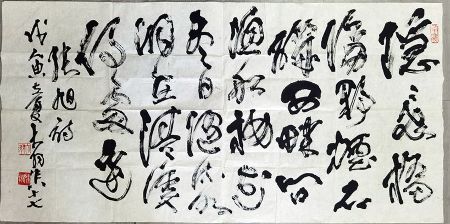 隐隐飞桥
隔野烟石
矶西畔问
渔船桃花
尽日随流水
洞在清溪
何处边
张旭诗
戊寅立夏